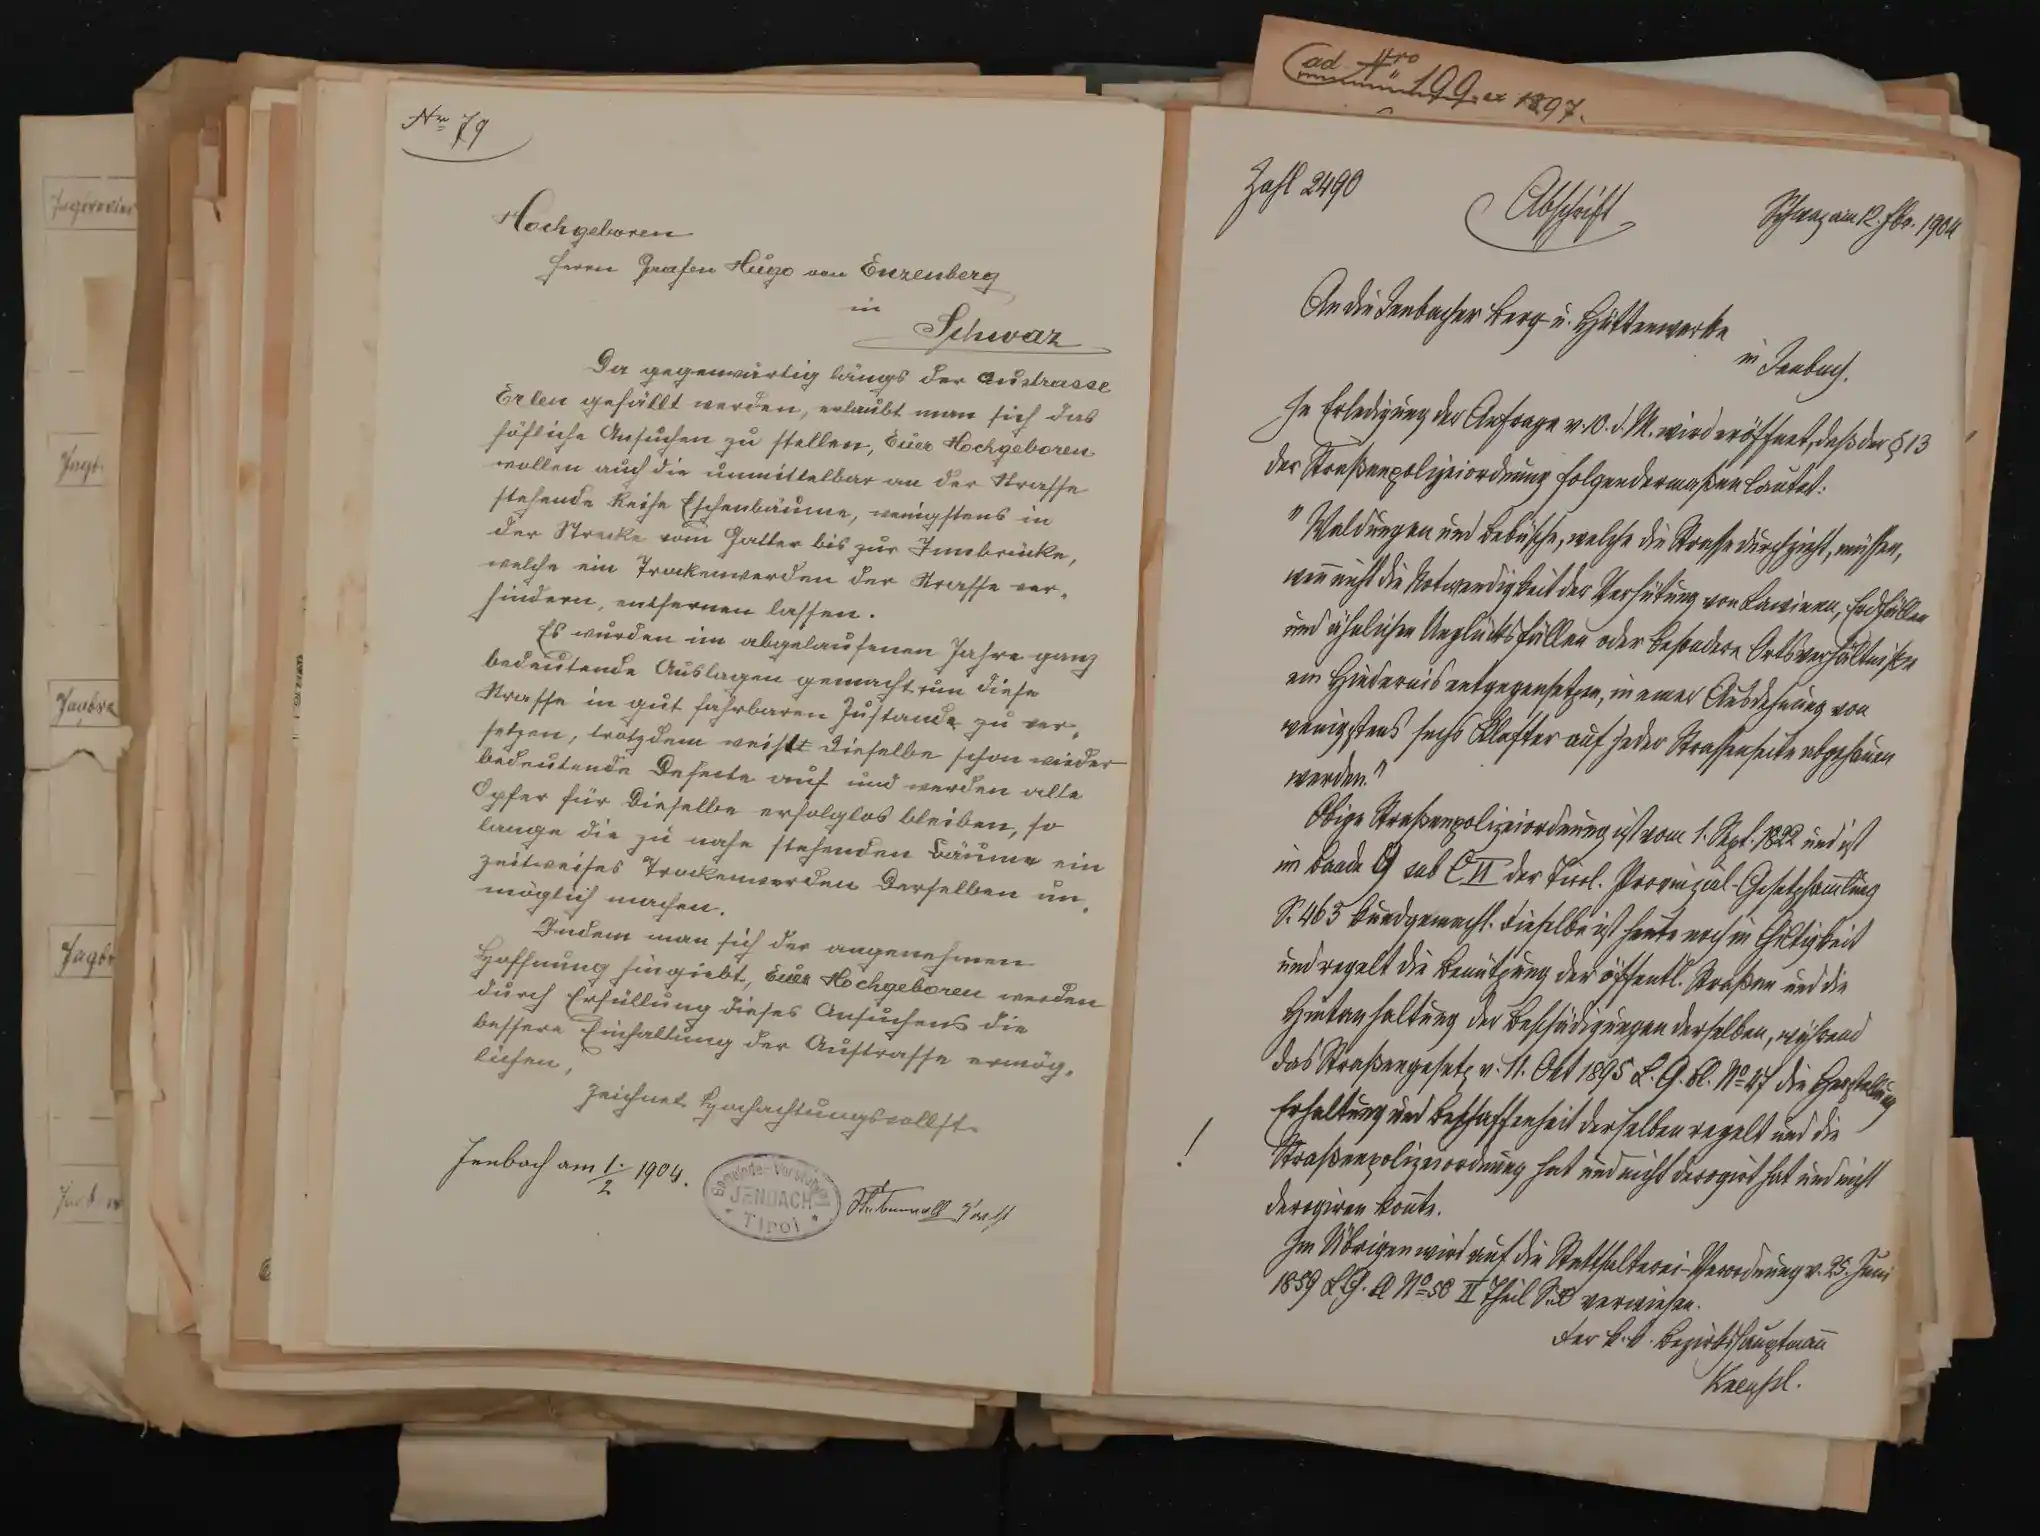 Jagdrevier
Jagd
Jagdre
Jagdr
Nro 79
Hochgeboren
Herrn Grafen Hugo von Enzenberg
in
Schwaz
Da gegenwärtig längs der Austrasse
Erlen gefällt werden, erlaubt man sich das
höfliche Ansuchen zu stellen, Euer Hochgeboren
wollen auch die unmittelbar an der Strasse
stehende Reihe Eschenbäume, wenigstens in
der Strecke vom Gatter bis zur Innbrücke,
welche ein Trockenwerden der Strasse ver-
hindern, entfernen lassen.
Es wurden im abgelaufenen Jahre ganz
bedeutende Auslagen gemacht um diese
Strasse in gut fahrbaren Zustande zu ver-
setzen, trotzdem weist dieselbe schon wieder
bedeutende Defecte auf und werden alle
Opfer für dieselbe erfolglos bleiben, so
lange die zu nahe stehenden Bäume ein
zeitweises Trockenwerden derselben un-
möglich machen.
Indem man sich der angenehmen
Hoffnung hingiebt, Euer Hochgeboren werden
durch Erfüllung dieses Ansuchens die
bessere Einhaltung der Austrasse ermög-
lichen,
zeichnet Hochachtungsvollst
Jenbach am 1./2 1904.
Gemeinde-Vorstehung
JENBACH
* Tirol *
ad Nro 199 ex 1897.
Zahl 2490
Abschrift
Schwaz am 12. Fbr. 1904
An die Jenbacher Berg- u. Hüttenwerke
in Jenbach.
In Erledigung der Anfrage v. 10. d. M. wird eröffnet, daß der § 13
der Straßenpolizeiordnung folgendermaßen lautet:
"Waldungen und Gebüsche, welche die Strasse durchzieht, müssen,
wenn nicht die Notwendigkeit der Verhütung von Lawinen, Erdfällen
und ähnlichen Unglücksfällen oder besondere Ortsverhältnisse
ein Hindernis entgegensetzen, in einer Ausdehnung von
wenigstens sechs Klafter auf jeder Strassenseite abgehauen
werden."
Obige Straßenpolizeiordnung ist vom 1. Sept. 1822 und ist
im Bande 9 sub CII der Tirol. Provinzial-Gesetzsammlung
S. 463 kundgemacht. Dieselbe ist heute noch in Giltigkeit
und regelt die Benützung der öffentl. Straßen und die
Hintanhaltung der Beschädigungen derselben, während
das Straßengesetz v. 11. Okt 1895 L. G. Bl. No 47 die Herstellung
Erhaltung und Beschaffenheit derselben regelt und die
! Straßenpolizeiordnung hat und nicht derogirt hat und nicht
derogiren konnte.
Im Übrigen wird auf die Statthalterei-Verordnung v. 25. Juni
1859 L. G. Bl No 58 II Theil verwiesen.
Der k. k. Bezirkshauptmann